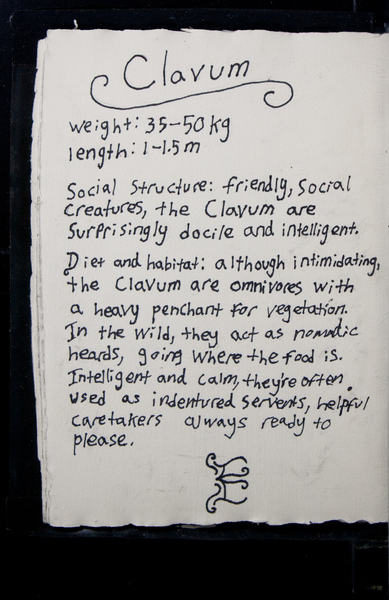 Clavum
weight: 35-50 kg
length: 1-1.5m
Social Structure: friendly, Social
Creatures, the Clavum are
Surprisingly docile and intelligent.
Diet and habitat: although intimidating,
the Clavum are omnivores with
a heavy penchant for vegetation.
In the wild, they act as nomadic
heards, going where the food is.
Intelligent and calm, they're often
used as indentured servents, helpful
caretakers always ready to
please.